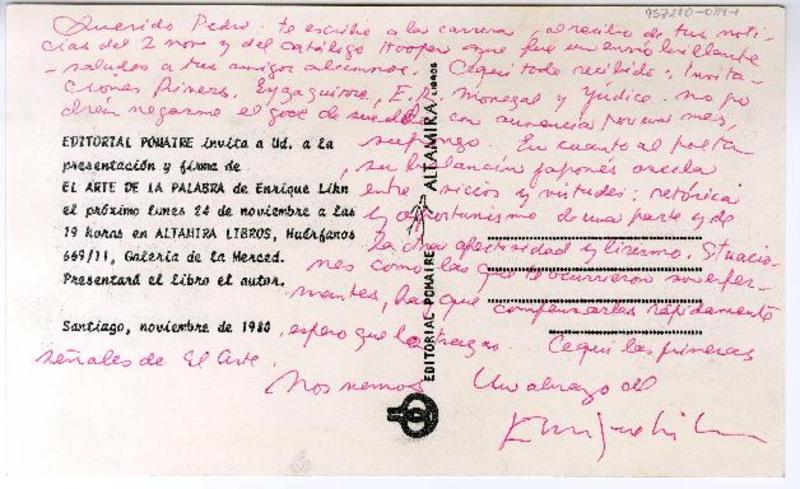 957280-0884
Querido Pedro: te escribo a la carrera, al recibo de tus noti-
cias del 2 nov y del catálogo Hooper que fue un envío brillante
- saludos a tus amigos alcemnos. Cequi todo recibido: Invita-
ciones Rivero, Eyzaguirre, E. R. Monegal y Yúdice. No po
drán negarme el goce de sueldo con ausencia por un mes,
supongo. En cuanto al poeta
su balancín japonés oscila
entre vicios y virtudes: retórica
y oportunismo de una parte y de
la otra afectividad y lirismo. Situacio-
nes como las que te ocurrieron son enfer-
mantes, hay que compensarlas rápidamente
, espero que lo hagas. Cequi las primeras
señales de El Arte.
Nos vemos Un abrazo de
Enrique Lihn
EDITORIAL POMAIRE invita a Ud. a la
presentación y firma de
EL ARTE DE LA PALABRA de Enrique Lihn
el próximo lunes 24 de noviembre a las
19 horas en ALTAMIRA LIBROS, Huérfanos
669/11, Galería de la Merced.
Presentará el libro el autor.
Santiago, noviembre de 1980
EDITORIAL POMAIRE
ALTAMIRA LIBROS